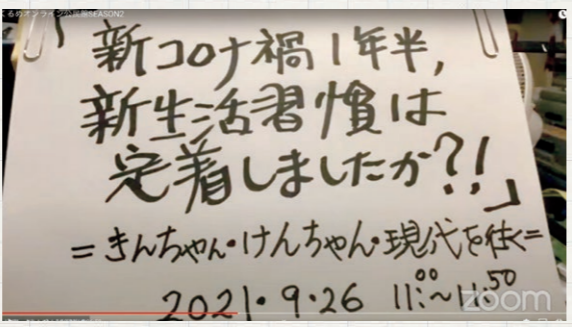 くるめオンライン公民館SEASON2
「新コロナ禍1年半,
新生活習慣は
定着しましたか?!」
=きんちゃん・けんちゃん・現代を往く=
2021・9・26 11:00〜11:50
zoom